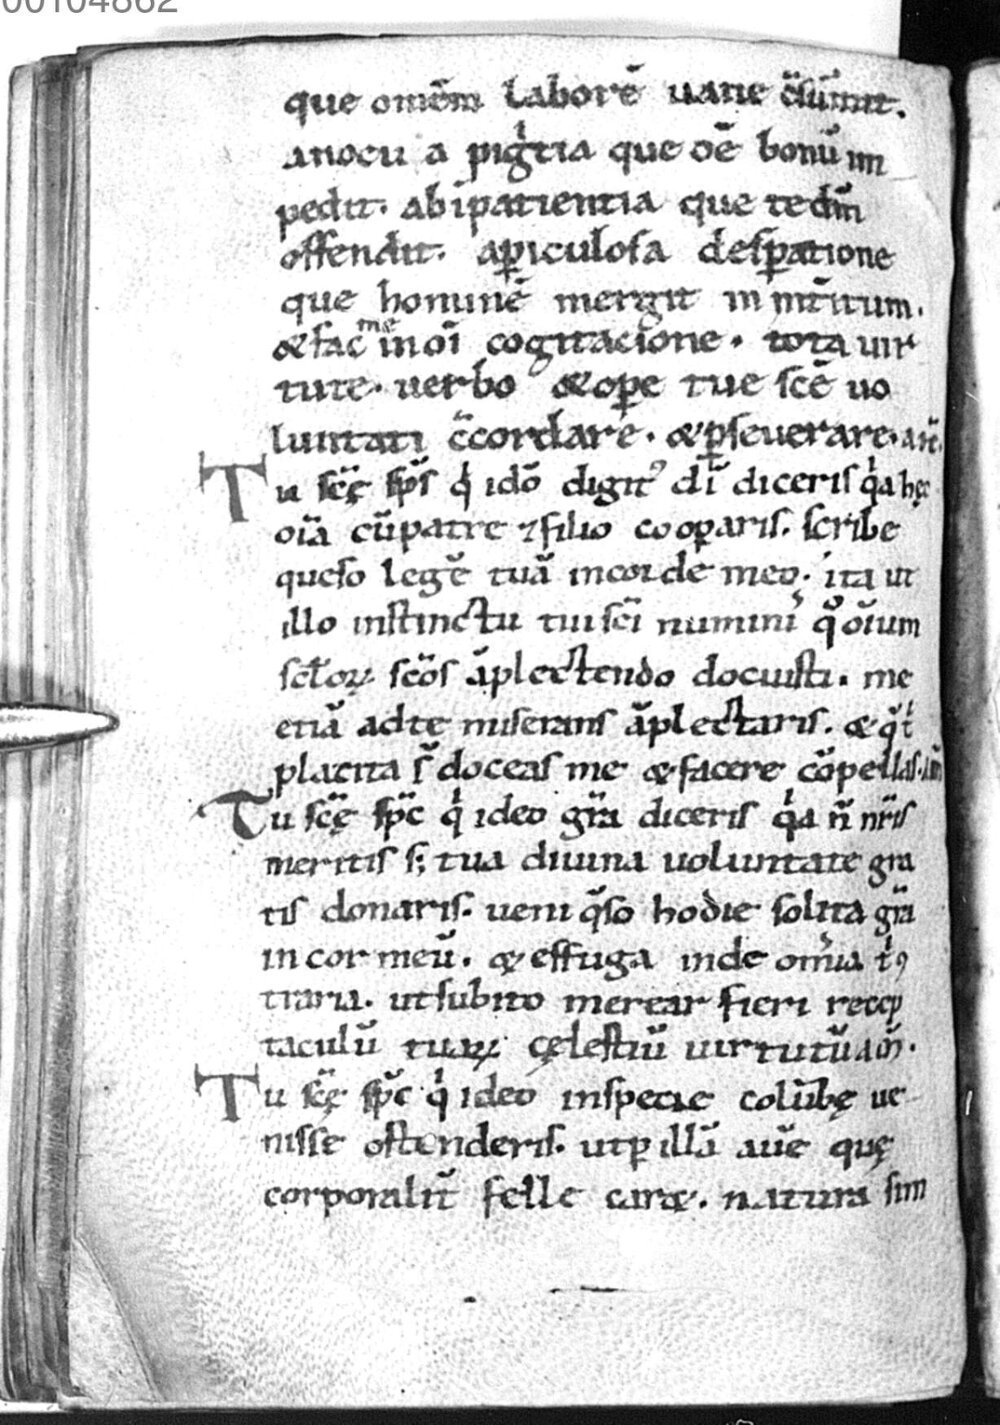 00104862
que omēm laborē uane c̄sūmit.
anocu a pigͥtia que oē bonū im
pedit. abipatientia que tedm̄
offendit. aꝑiculosa desꝑatione
que hominē mergit in int̄itum.
&fac me in oī cogitacione. tota uir
tute. uerbo &oꝑe tue scē uo
luntati c̄cordare. &ꝑseuerare.
Tu scē sp̄s qͥ idō digitꝰ dī diceris qͥa hęc
oīa cūpatre ⁊filio cooꝑaris. scribe
queso legē tuā incorde meo. ita ut
illo instinctu tui scī numinis qͦ oīum
scōs āplectendo docuisti. me
etiā adte miserans āplectaris. &
placita s̄ doceas me &facere cōpellas.
Tu scē sp̄c qͥ ideo gr̄a diceris qͥa n̄ nr̄is
meritis s; tua diuina uoluntate gra
tis donaris. ueni q̄so hodie solita gr̄a
in cor meū. &effuga inde omīa
traria. utsubito merear fieri recep
taculū tuaꝝ cęlestiū uirtutū
Tu scē sp̄c qͥ ideo inspecie colūbę ue
nisse ostenderis. utꝑ illā auē quę
corporalit̄ felle caræ. natura sim